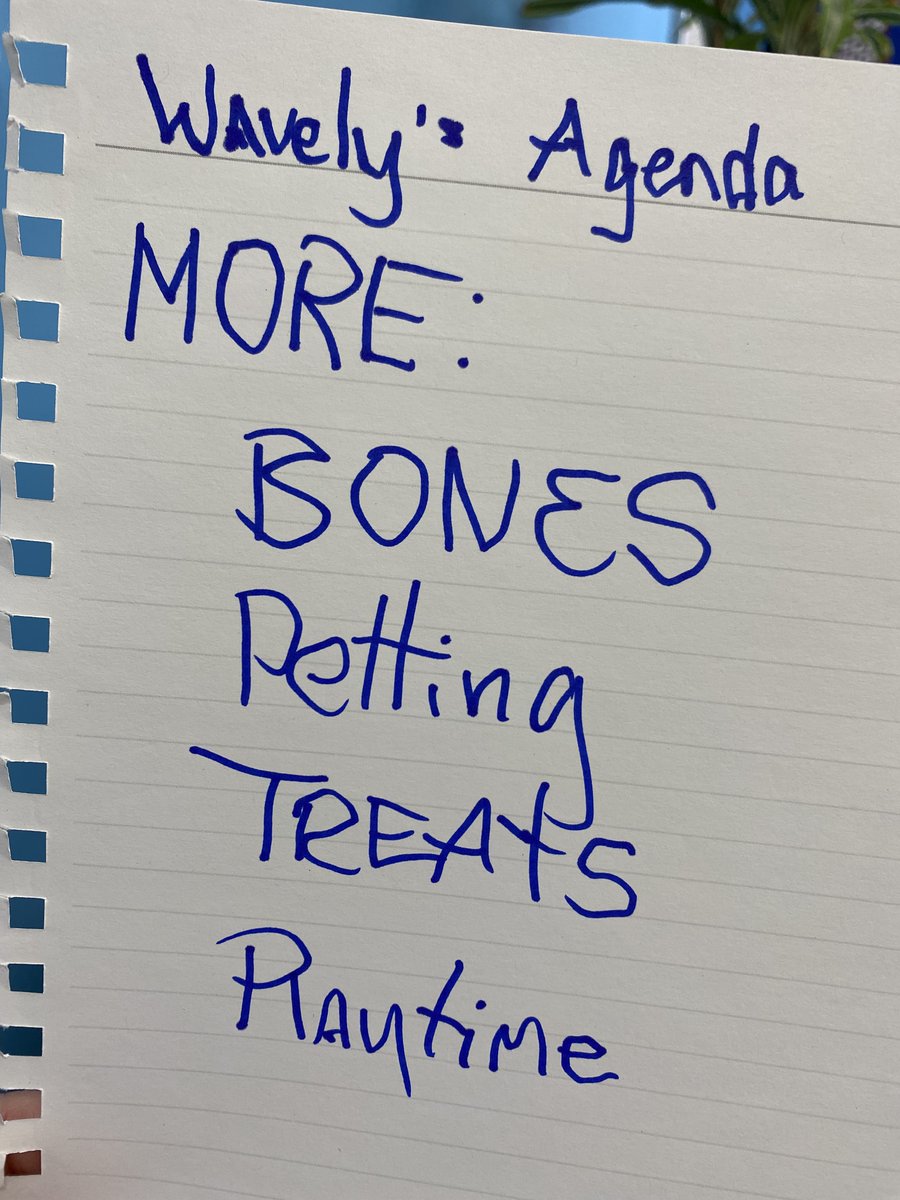 Wavely's Agenda
MORE:
BONES
Petting
TREATS
Playtime